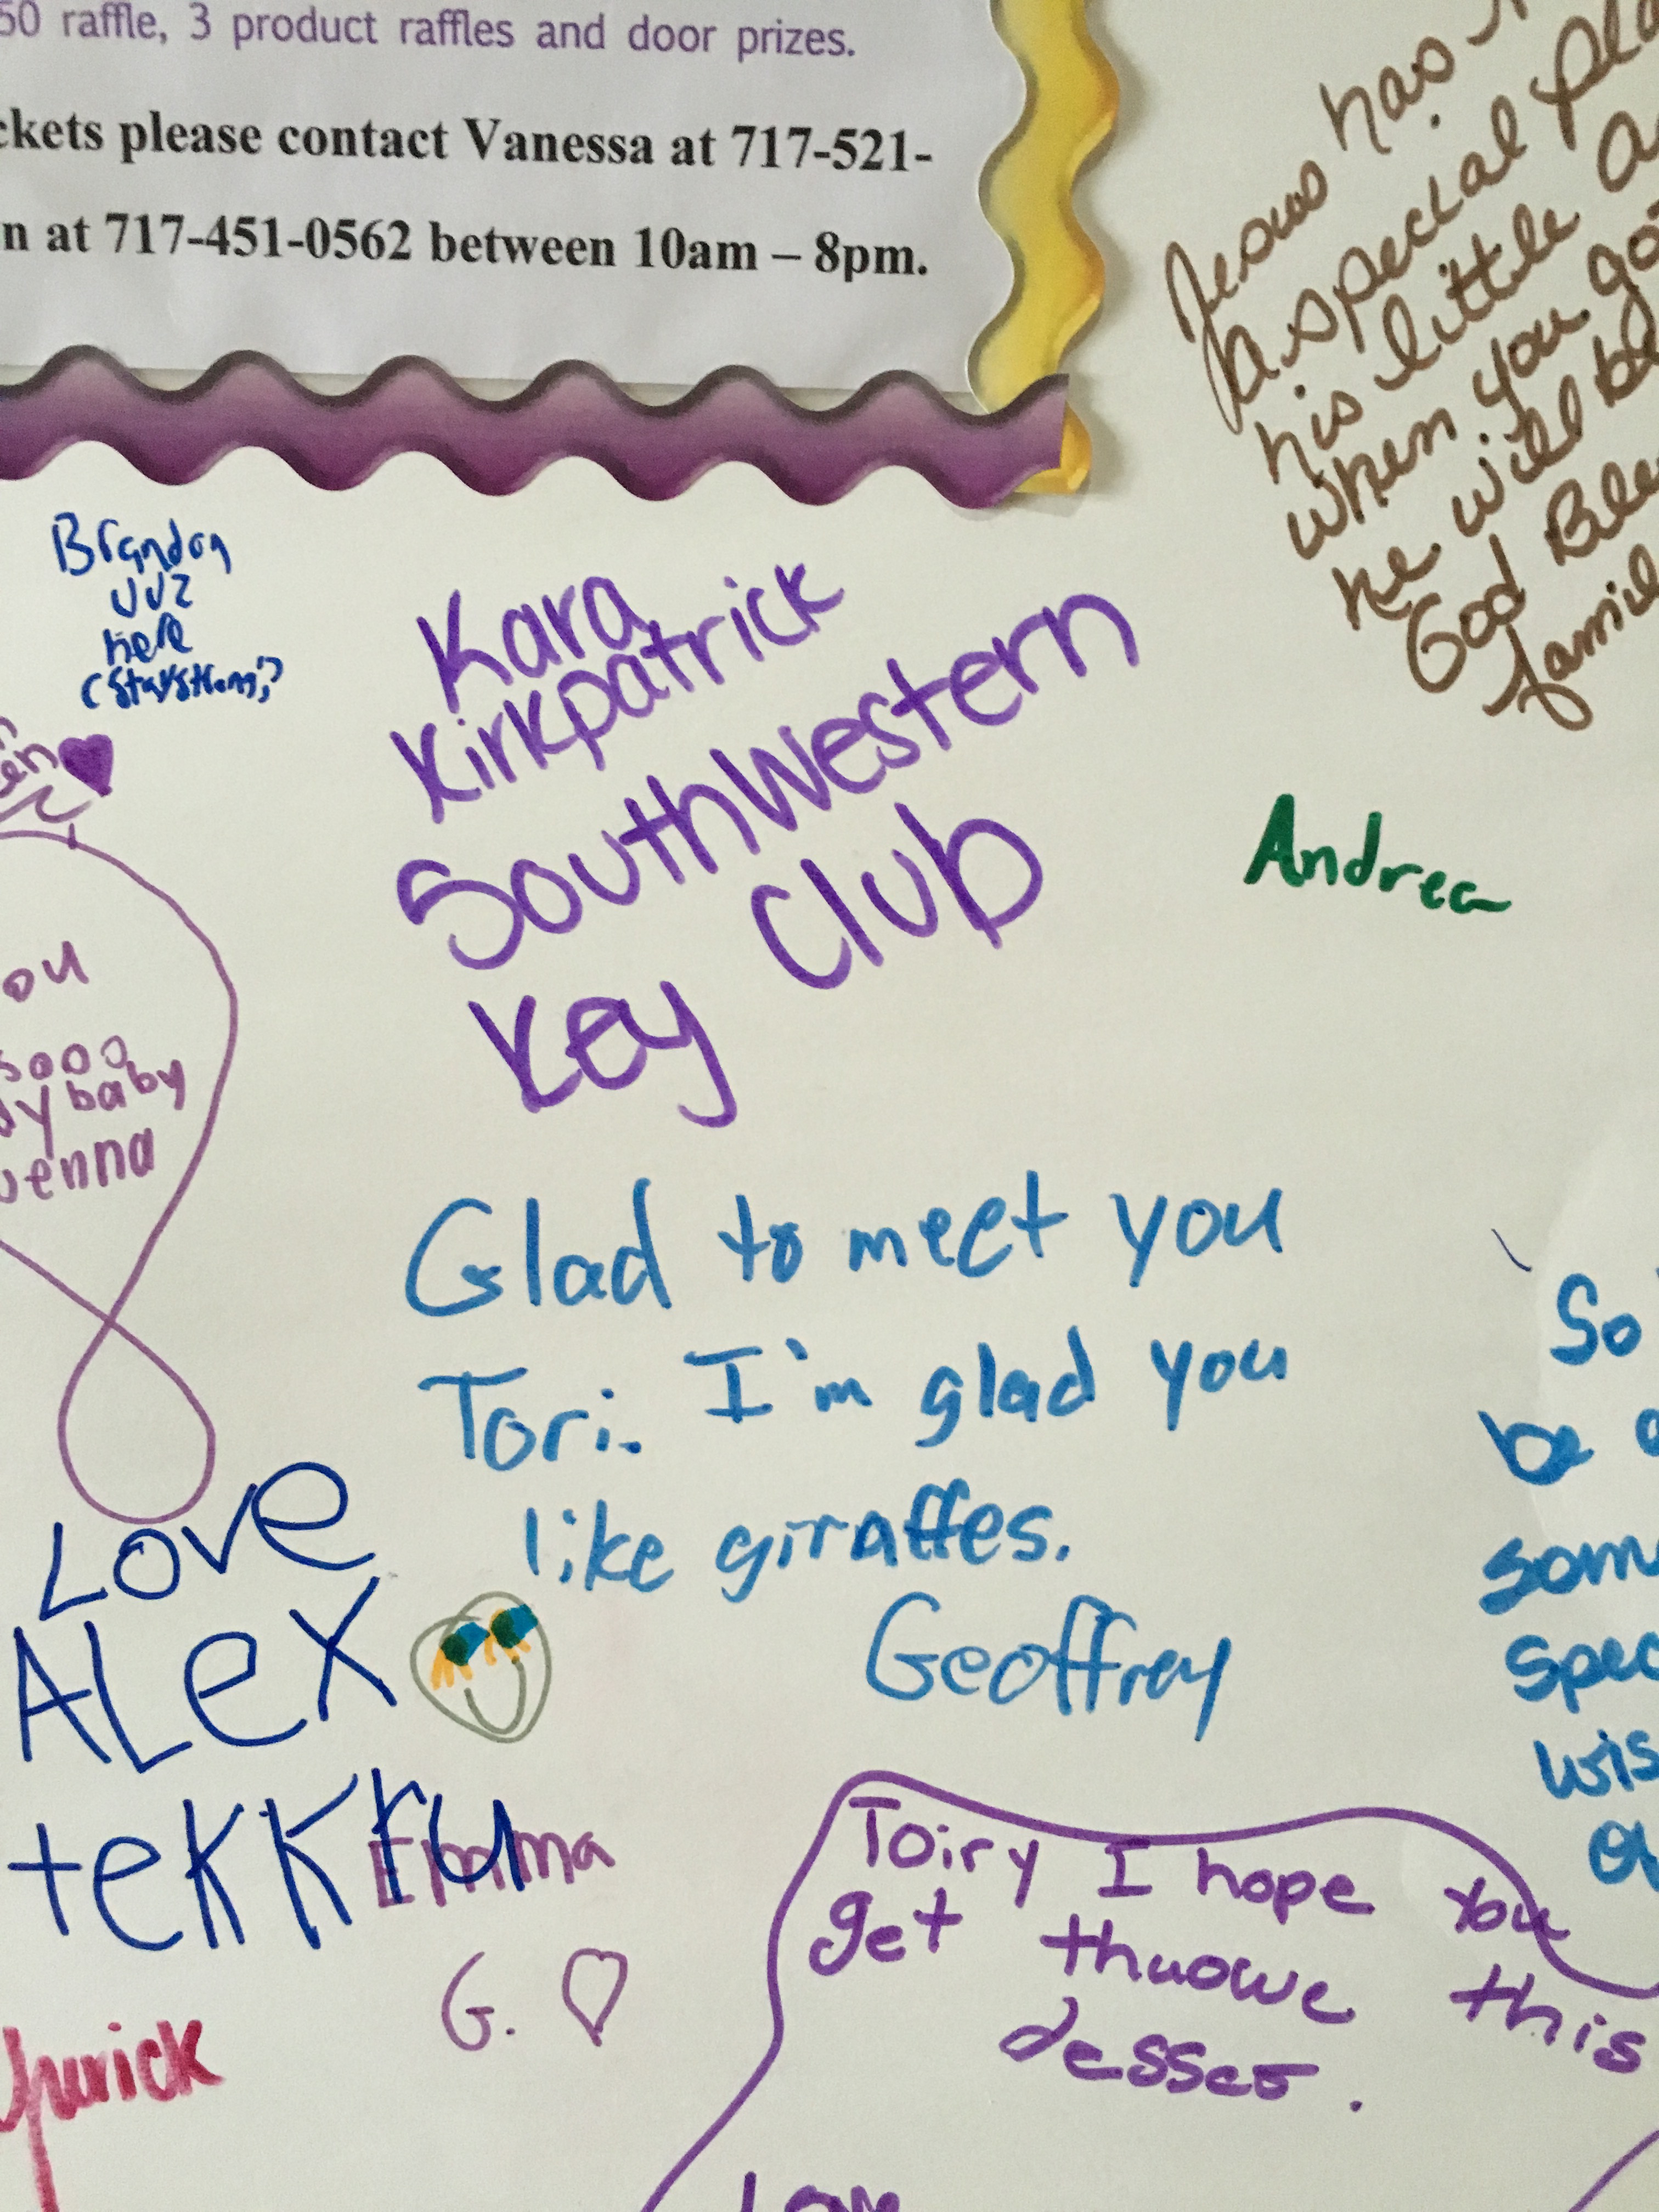 50 raffle, 3 product raffles and door prizes.
ckets please contact Vanessa at 717-521-
n at 717-451-0562 between 10am – 8pm.
Jesus has
a special
his little
when you
he will be
God
Brandon
here
Kara
Kirkpatrick
SouthWestern
Key Club
Andrea
ou
sooo
baby
enna
Glad to meet you
Tori. I'm glad you
like giraffes.
Geoffrey
Love
ALex
tekkru
Emma
G.
So
be
som
spec
wis
Toiry I hope You
get thuowe this
desseo.
urick
Love